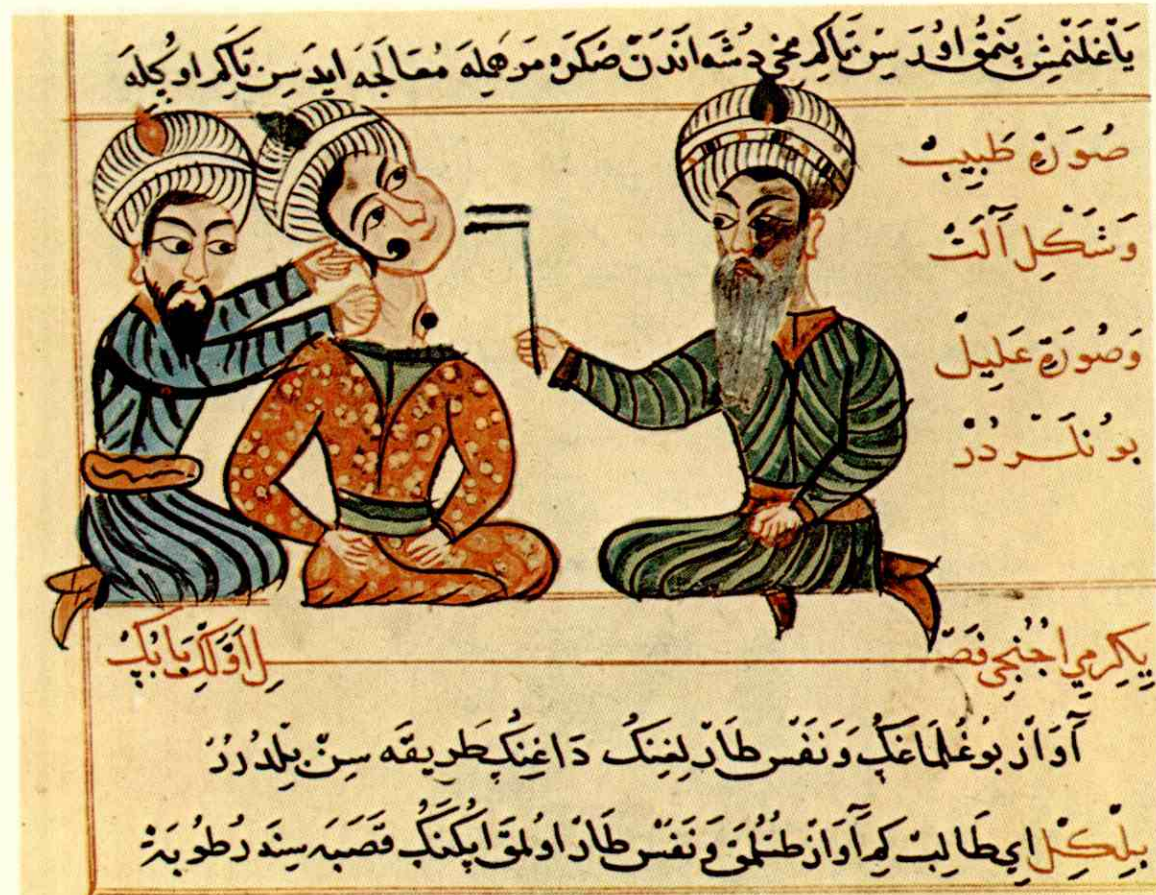 یَاغْلَنْمِشْ پَنْمُقْ اُودَسِنْ تَاكِمْ مُخِی دُشَه اَنْدَنْ صَكْرَه مَرْهَمِلَه مُعَالَجَه اِیدَسِنْ تَاكِمْ اوكِلَه
صُورَةِ طَبِیبْ
وَشَكْلِ آلَتْ
وَصُورَةِ عَلِیلْ
بُونْلَرْدُرْ
یِكِرْمِی اُجُنْجِی فَصْلِ اَوَّلْكِ بَابُكْ
آوَازْ بُوغُلْمَاغِكْ وَنَفَسْ طَارْلِغِنِكْ دَاغِنِكْ طَرِیقَه سِنْ بِلْدُرُرْ
بِلْكِلْ اَیْ طَالِبْ كِمْ آوَازْ طُتُلْمَقْ وَنَفَسْ طَارْ اُولْمَقْ اَپْكَنِكْ قَصَبَه سِنْدَه رُطُوبَةْ